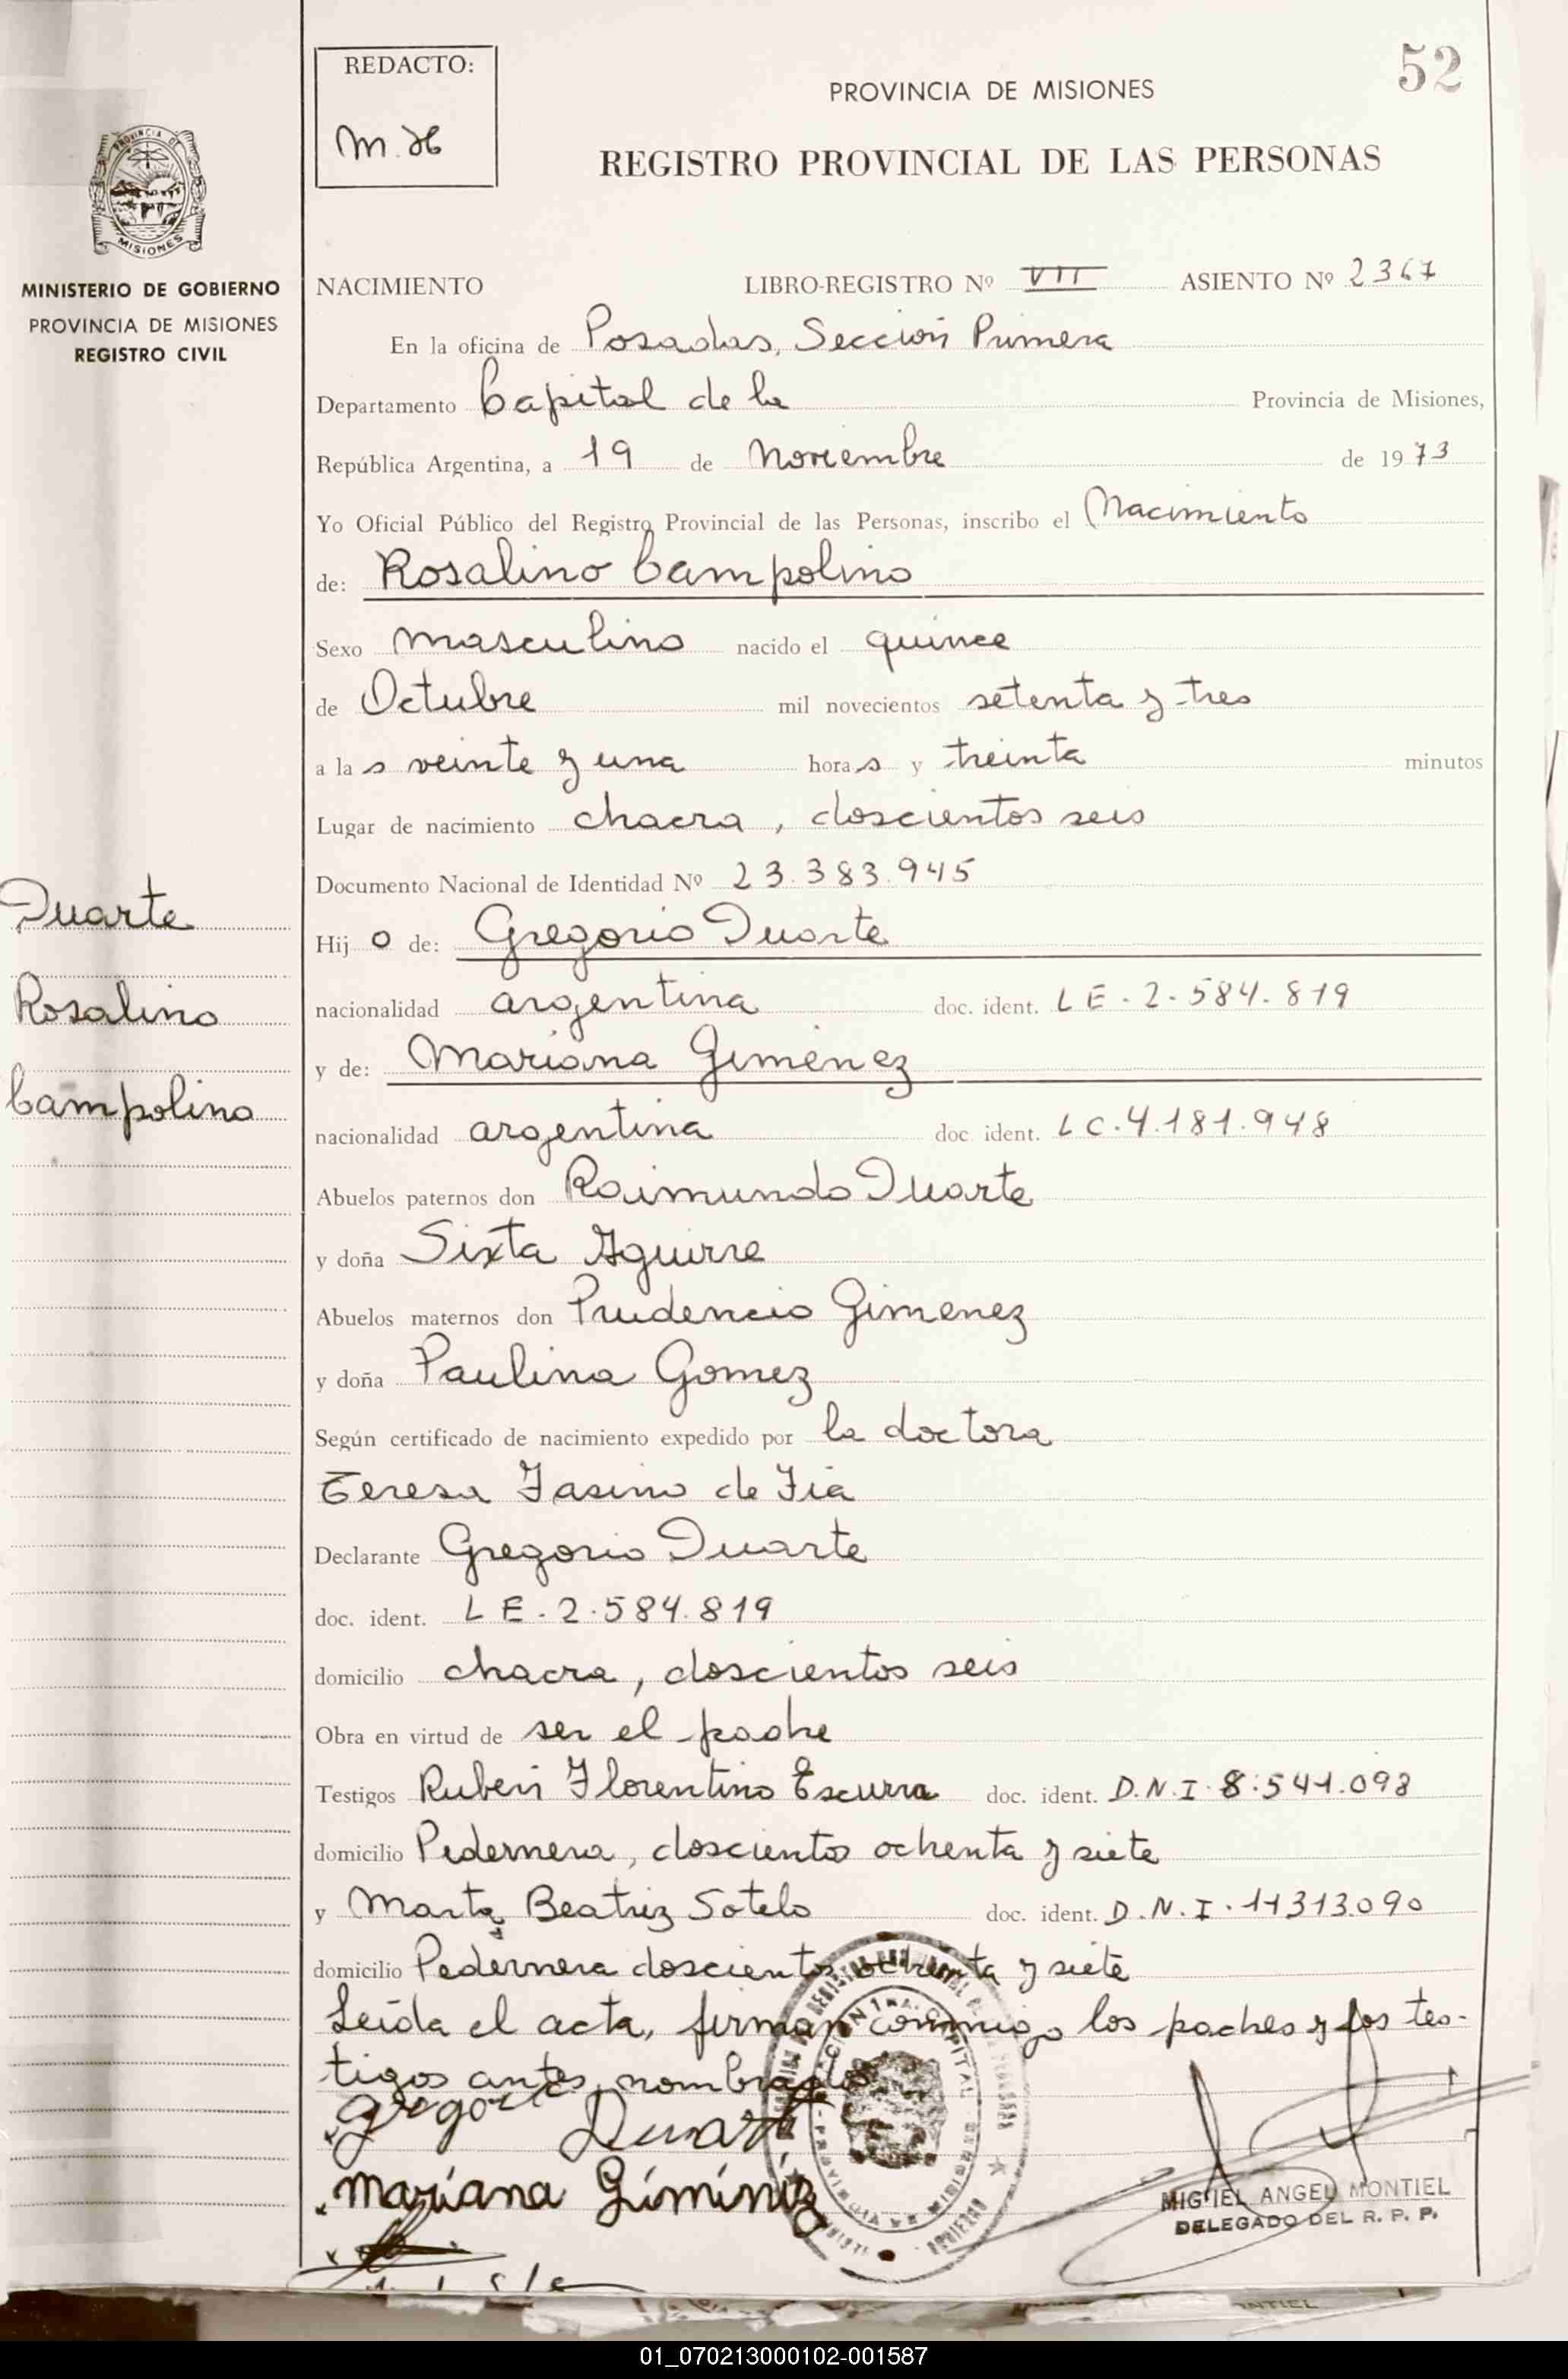 REDACTO:
52
PROVINCIA DE MISIONES
M.H
REGISTRO PROVINCIAL DE LAS PERSONAS
PROVINCIA DE
MISIONES
MINISTERIO DE GOBIERNO
PROVINCIA DE MISIONES
REGISTRO CIVIL
NACIMIENTO LIBRO-REGISTRO Nº VII ASIENTO Nº 2367
En la oficina de Posadas, Sección Primera
Departamento Capital de la Provincia de Misiones,
República Argentina, a 19 de Noviembre de 1973
Yo Oficial Público del Registro Provincial de las Personas, inscribo el Nacimiento
de: Rosalino Campolino
Sexo masculino nacido el quince
de Octubre mil novecientos setenta y tres
a la s veinte y una hora s y treinta minutos
Lugar de nacimiento chacra, doscientos seis
Documento Nacional de Identidad Nº 23.383.945
Duarte
Hij o de: Gregorio Duarte
Rosalino
nacionalidad argentina doc. ident. LE-2-584-819
y de: Mariana Gimenez
Campolino
nacionalidad argentina doc ident. LC.4.181.948
Abuelos paternos don Raimundo Duarte
y doña Sixta Aguirre
Abuelos maternos don Prudencio Gimenez
y doña Paulina Gomez
Según certificado de nacimiento expedido por la doctora
Teresa Fasino de Fia
Declarante Gregorio Duarte
doc. ident. LE-2.584.819
domicilio chacra, doscientos seis
Obra en virtud de ser el padre
Testigos Ruben Florentino Escurra doc. ident. D.N.I.8:541.098
domicilio Pedernera, doscientos ochenta y siete
y Marta Beatriz Sotelo doc. ident. D.N.I.11313.090
domicilio Pedernera doscientos ochenta y siete
Leída el acta, firman conmigo los padres y los tes-
tigos antes nombrados
Gregorio Duarte
Mariana Giminiz
MIGUEL ANGEL MONTIEL
DELEGADO DEL R. P. P.
01_070213000102-001587